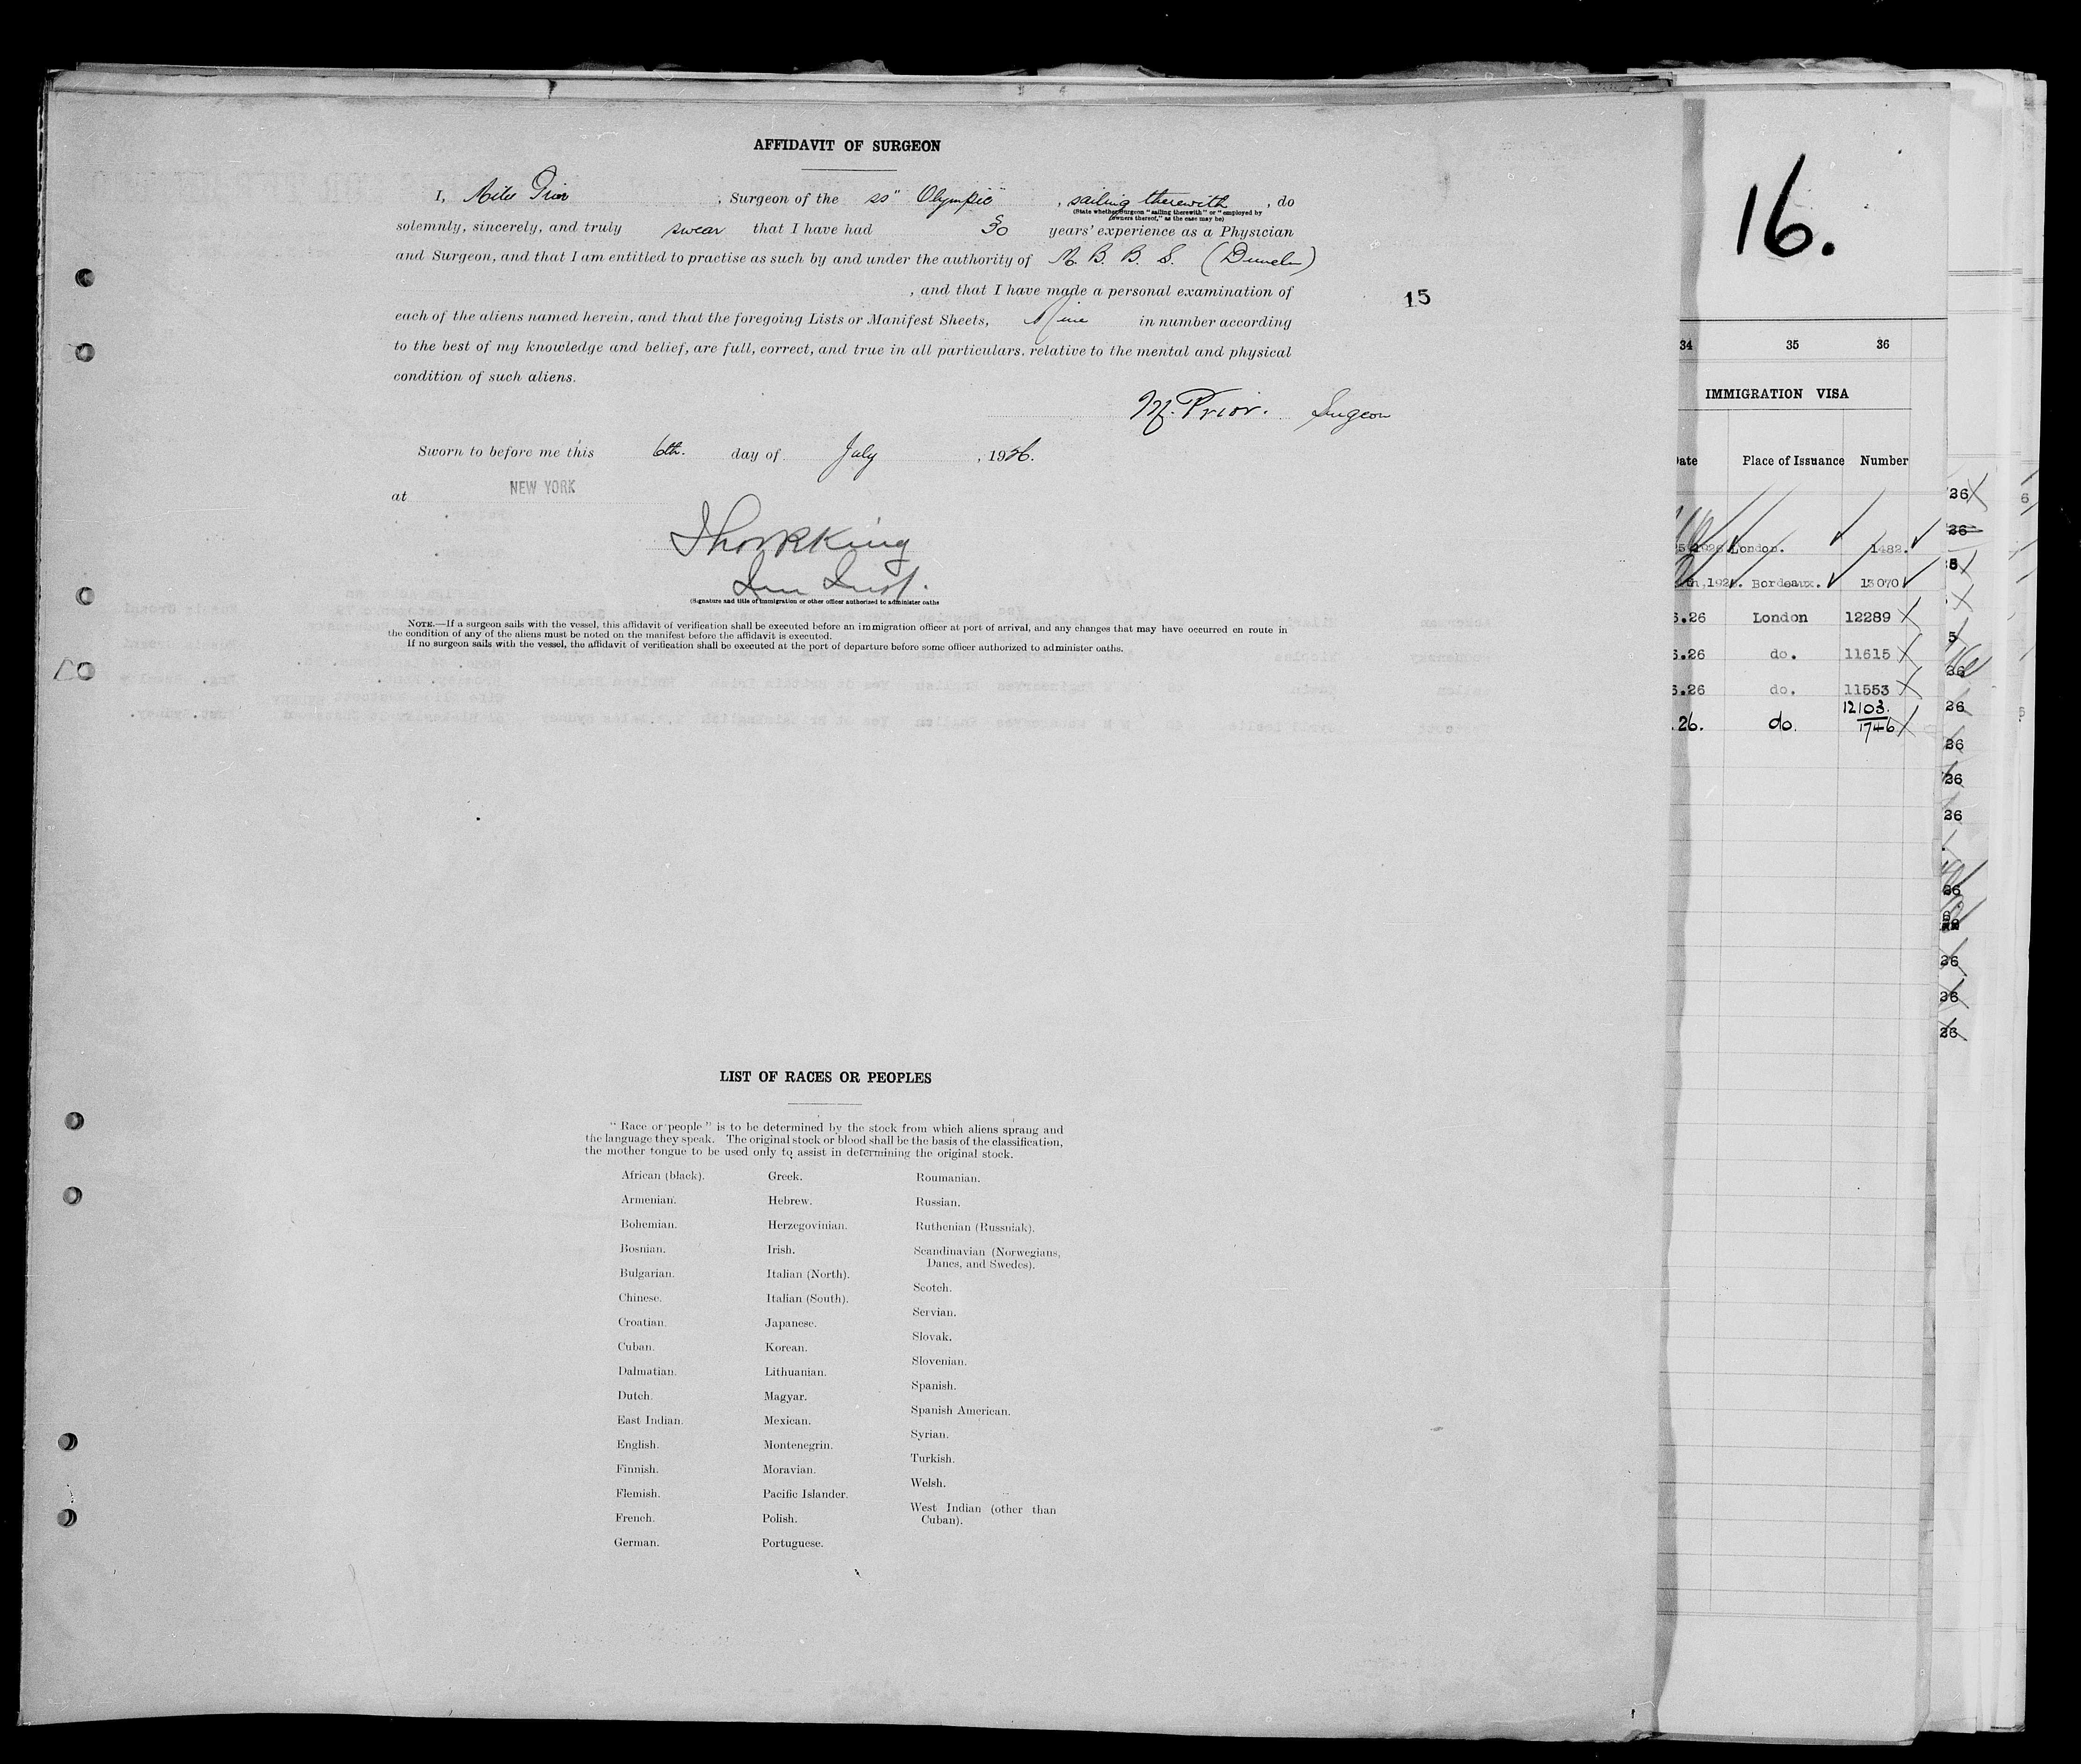 AFFIDAVIT OF SURGEON
I, Miles Prior , Surgeon of the ss "Olympic" , sailing therewith , do
(State whether Surgeon "sailing therewith" or "employed by
owners thereof," as the case may be)
solemnly, sincerely, and truly swear that I have had 30 years' experience as a Physician
and Surgeon, and that I am entitled to practise as such by and under the authority of M. B. B. S. (Dunelm)
, and that I have made a personal examination of
each of the aliens named herein, and that the foregoing Lists or Manifest Sheets, Nine in number according
to the best of my knowledge and belief, are full, correct, and true in all particulars, relative to the mental and physical
condition of such aliens.
15
M. Prior. Surgeon
Sworn to before me this 6th. day of July , 1926.
at NEW YORK
(Signature and title of immigration or other officer authorized to administer oaths
NOTE.—If a surgeon sails with the vessel, this affidavit of verification shall be executed before an immigration officer at port of arrival, and any changes that may have occurred en route in
the condition of any of the aliens must be noted on the manifest before the affidavit is executed.
If no surgeon sails with the vessel, the affidavit of verification shall be executed at the port of departure before some officer authorized to administer oaths.
LIST OF RACES OR PEOPLES
"Race or people" is to be determined by the stock from which aliens sprang and
the language they speak. The original stock or blood shall be the basis of the classification,
the mother tongue to be used only to assist in determining the original stock.
African (black).
Armenian.
Bohemian.
Bosnian.
Bulgarian.
Chinese.
Croatian.
Cuban.
Dalmatian.
Dutch.
East Indian.
English.
Finnish.
Flemish.
French.
German.
Greek.
Hebrew.
Herzegovinian.
Irish.
Italian (North).
Italian (South).
Japanese.
Korean.
Lithuanian.
Magyar.
Mexican.
Montenegrin.
Moravian.
Pacific Islander.
Polish.
Portuguese.
Roumanian.
Russian.
Ruthenian (Russniak).
Scandinavian (Norwegians,
Danes, and Swedes).
Scotch.
Servian.
Slovak.
Slovenian.
Spanish.
Spanish American.
Syrian.
Turkish.
Welsh.
West Indian (other than
Cuban).
16.
34 35 36
IMMIGRATION VISA
Date Place of Issuance Number
1926 London. 1482.
Bordeaux. 13070
.26 London 12289
.26 do. 11615
.26 do. 11553
12103.
.26. do. 1746